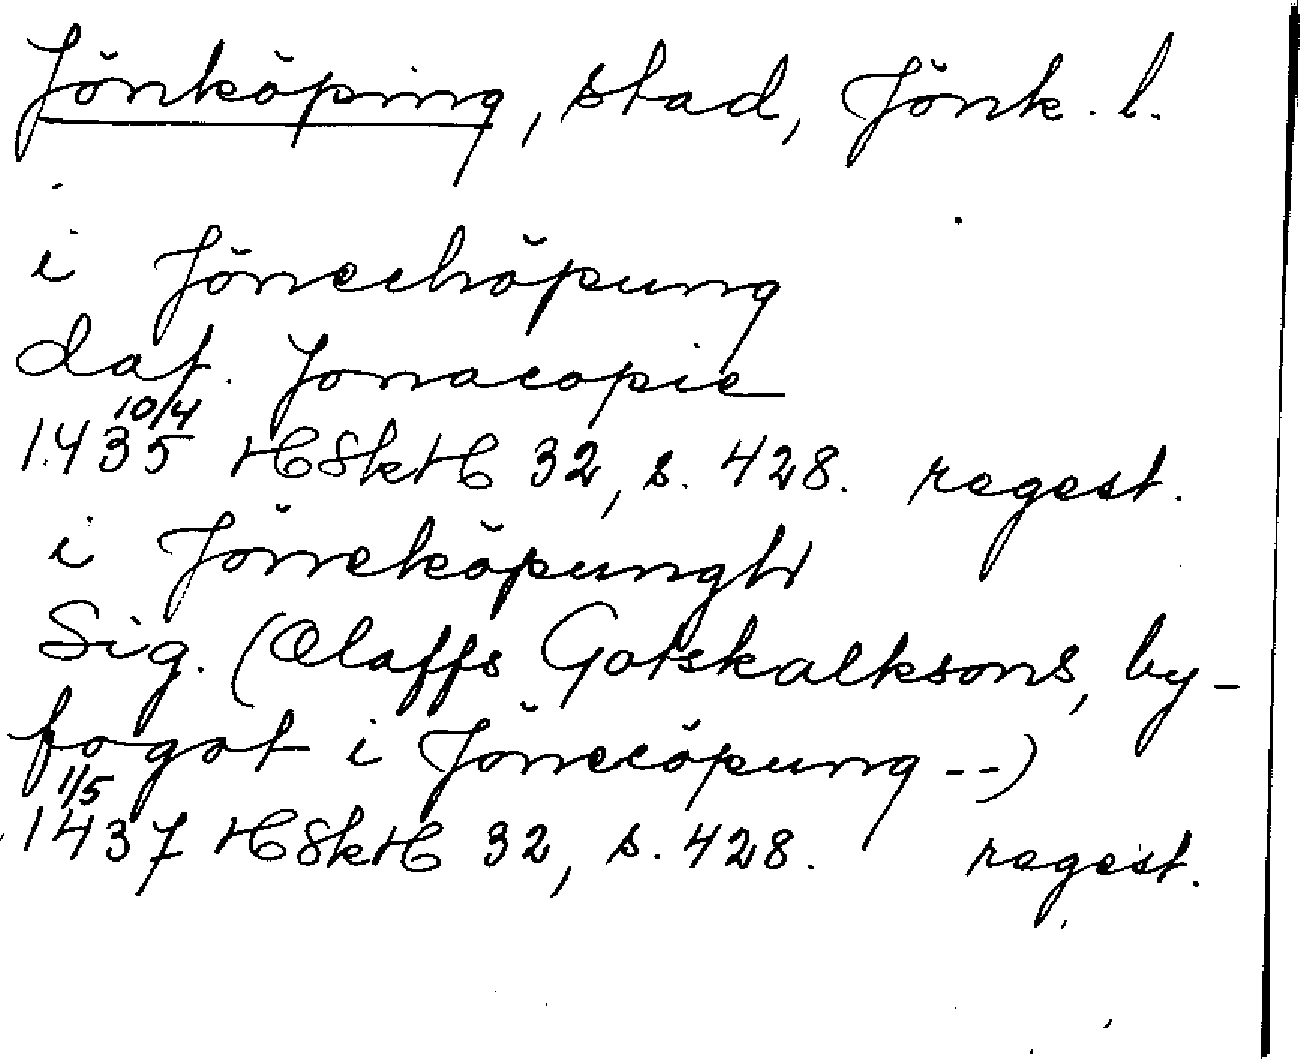 Jönköping, stad, Jönk. l.
i Jönechöpung
dat. Jonacopie
10/4
1435 HSkH 32, s. 428. regest.
i Jöneköpungh
Sig. (Olaffs Gotskalksons, by-
fogot i Jönecöpung --)
1/5
1437 HSkH 32, s. 428. regest.